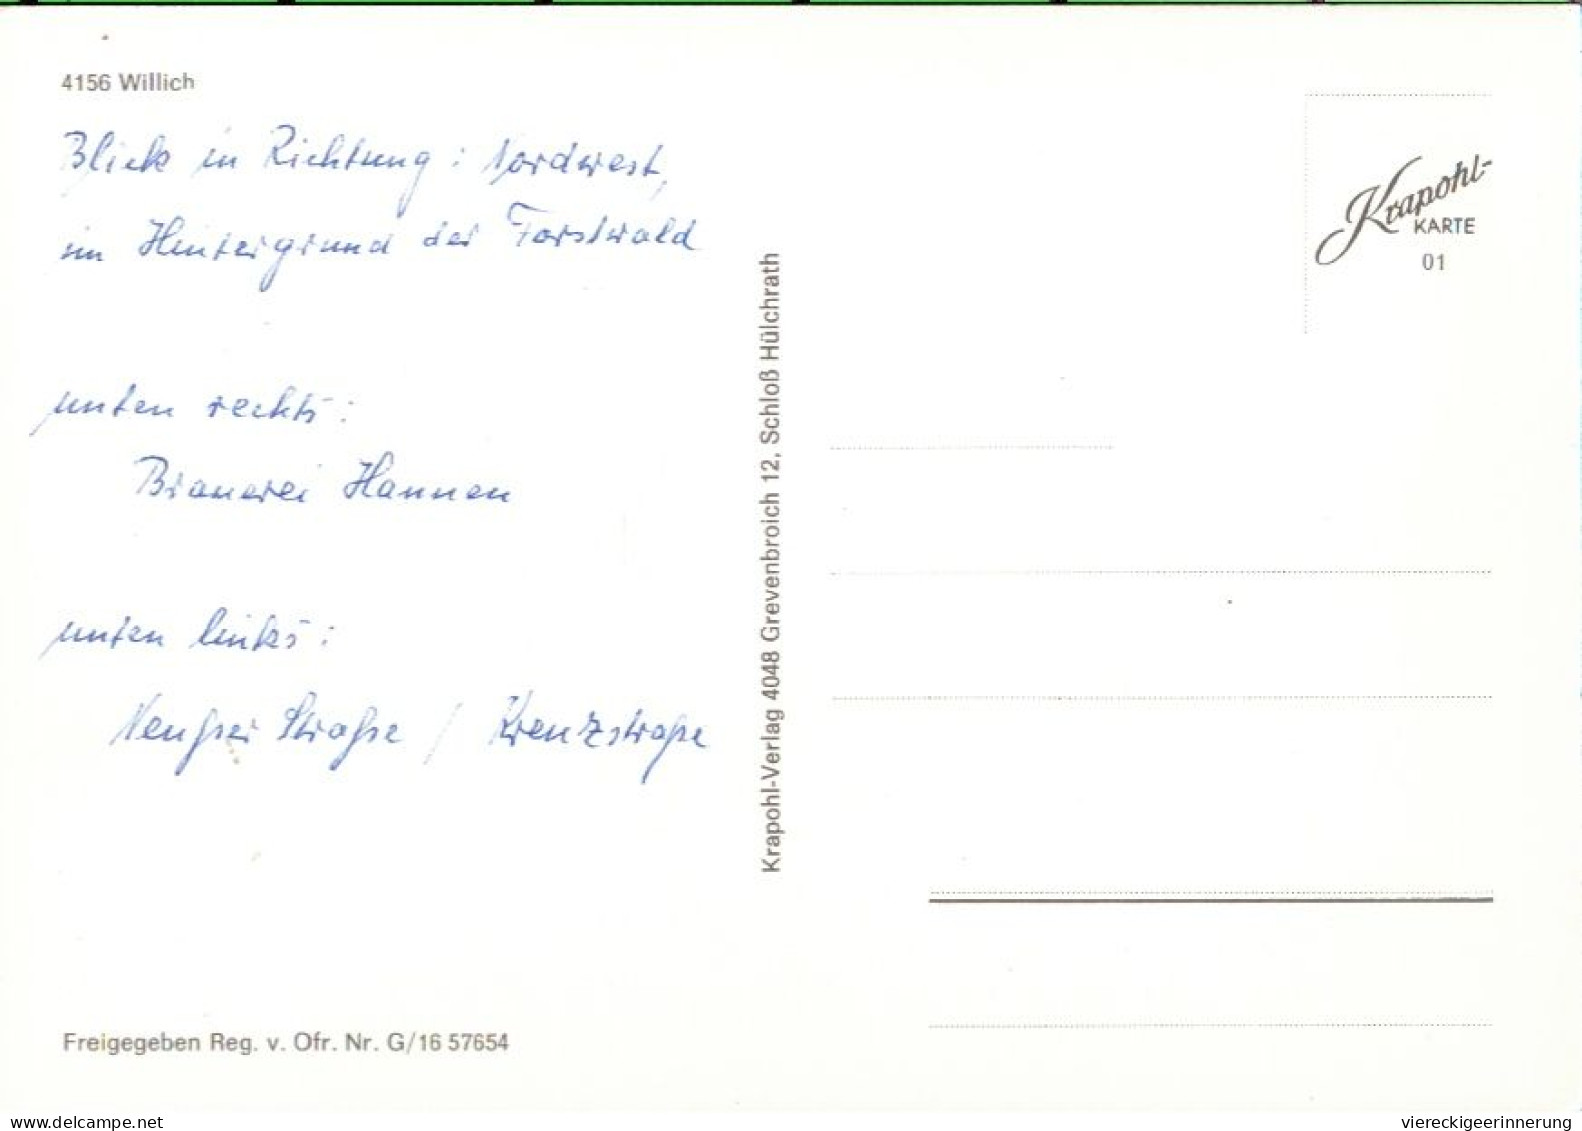 4156 Willich
Blick in Richtung: Nordwest,
im Hintergrund der Forstwald
unten rechts:
Brauerei Hannen
unten links:
Neußer Straße / Kreuzstraße
Freigegeben Reg. v. Ofr. Nr. G/16 57654
Krapohl-Verlag 4048 Grevenbroich 12, Schloß Hülchrath
Krapohl-
KARTE
01
www.delcampe.net
viereckigeerinnerung